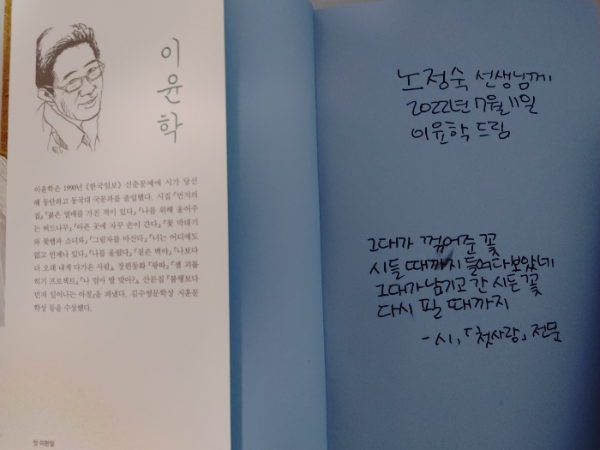 이윤학
이윤학은 1990년 《한국일보》 신춘문예에 시가 당선
돼 등단하고 동국대 국문과를 졸업했다. 시집 『먼지의
집』 『붉은 열매를 가진 적이 있다』 『나를 위해 울어주
는 버드나무』 『아픈 곳에 자꾸 손이 간다』 『꽃 막대기
와 꽃뱀과 소녀와』 『그림자를 마신다』 『너는 어디에도
없고 언제나 있다』 『나를 울렸다』 『짙은 백야』 『나보다
더 오래 내게 다가온 사람』, 장편동화 『왕따』 『샘 괴롭
히기 프로젝트』 『나 엄마 딸 맞아?』, 산문집 『불행보다
먼저 일어나는 아침』을 펴냈다. 김수영문학상 지훈문
학상 등을 수상했다.
노정숙 선생님께
2022년 7월 11일
이윤학 드림
그대가 꺾어준 꽃
시들 때까지 들여다보았네
그대가 남기고 간 시든 꽃
다시 필 때까지
-시, 「첫사랑」 전문